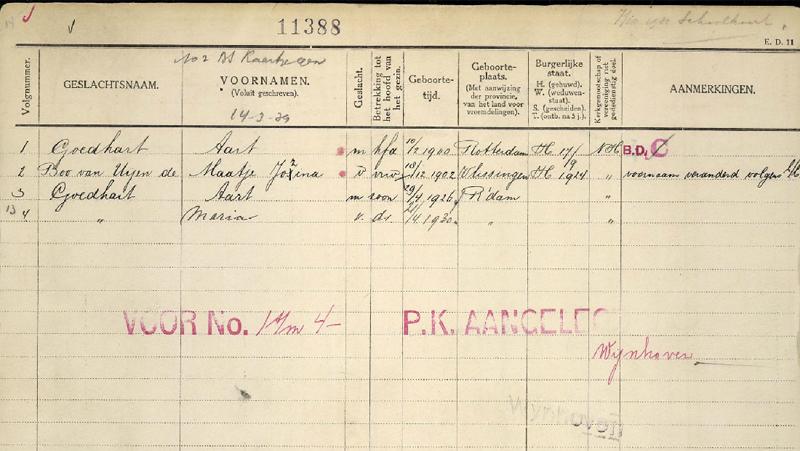 11388
E. D. 11
Volgnummer.
GESLACHTSNAAM.
VOORNAMEN.
(Voluit geschreven.)
14-3-39
Geslacht.
Betrekking tot het hoofd van het gezin.
Geboorte-
tijd.
Geboorte-
plaats.
(Met aanwijzing
der provincie,
van het land voor
vreemdelingen).
Burgerlijke
staat.
H. (gehuwd).
W. (weduwen-
staat).
S. (gescheiden).
Kerkgenootschap of vereeniging niet godsdienstig doel.
AANMERKINGEN.
1 Goedhart Aart m hfd 10/2 1900 Rotterdam H 17/9 NH B.D.
2 Maatje v vrw 18/12 1902 Vlissingen H 1924 " voornaam veranderd volgens
3 Goedhart Aart m zoon 29/4 1926 R'dam "
4 " Maria v. dr. 1930 " "
VOOR No. 1 t/m 4- P.K. AANGELEG
Wijnhaven